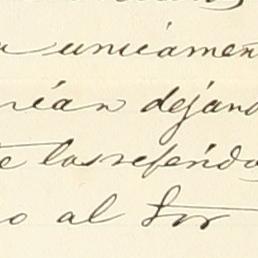 unicamen
rían dejand
te los referido
o al Sor